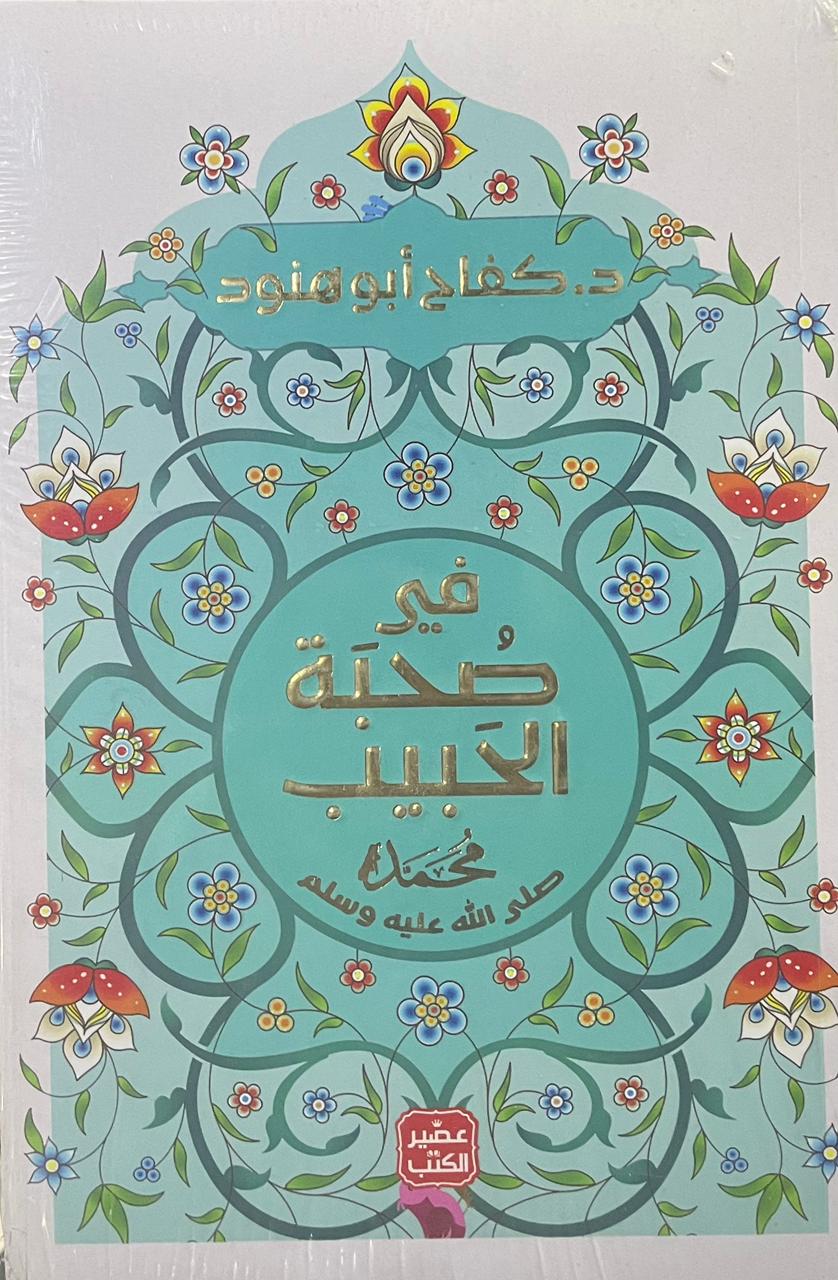 د. كفاح أبو هنود
في
صُحبَة
الحَبيب
مُحَمَّد
صلى الله عليه وسلم
عصير
الكتب